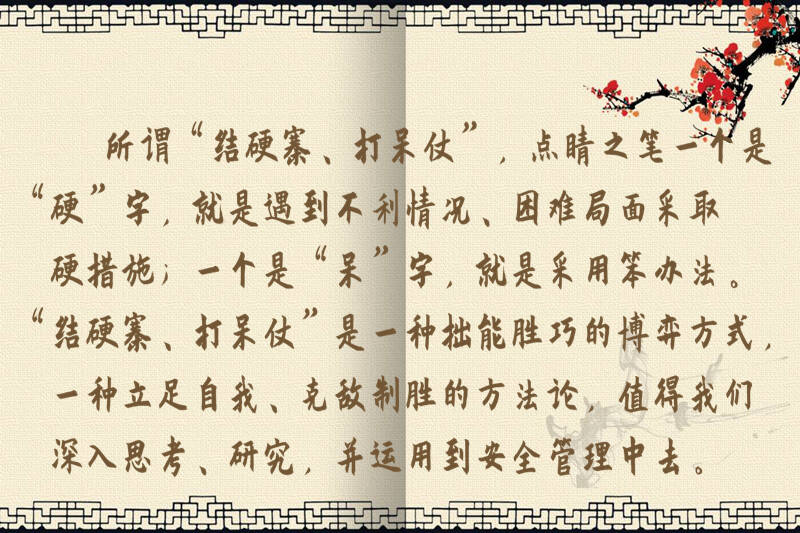 所谓“结硬寨、打呆仗”，点睛之笔一个是
“硬”字，就是遇到不利情况、困难局面采取
硬措施；一个是“呆”字，就是采用笨办法。
“结硬寨、打呆仗”是一种拙能胜巧的博弈方式，
一种立足自我、克敌制胜的方法论，值得我们
深入思考、研究，并运用到安全管理中去。